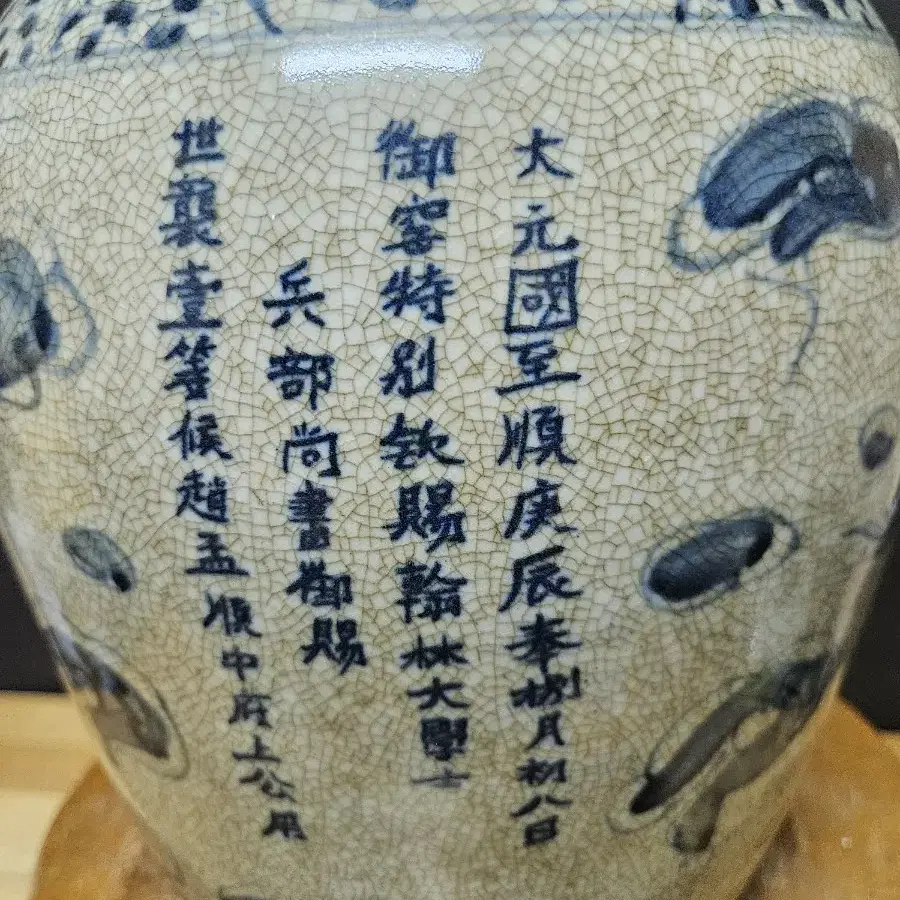 大元國至順庚辰奉捌月初八日
御窰特别欽賜翰林大學士
兵部尚書御賜
世襲壹等候趙孟順中府上公用